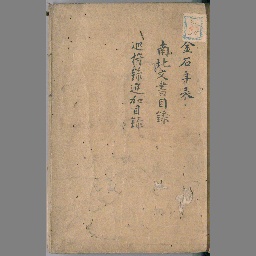 金石年表
南北文書目録
巡狩録追加目録